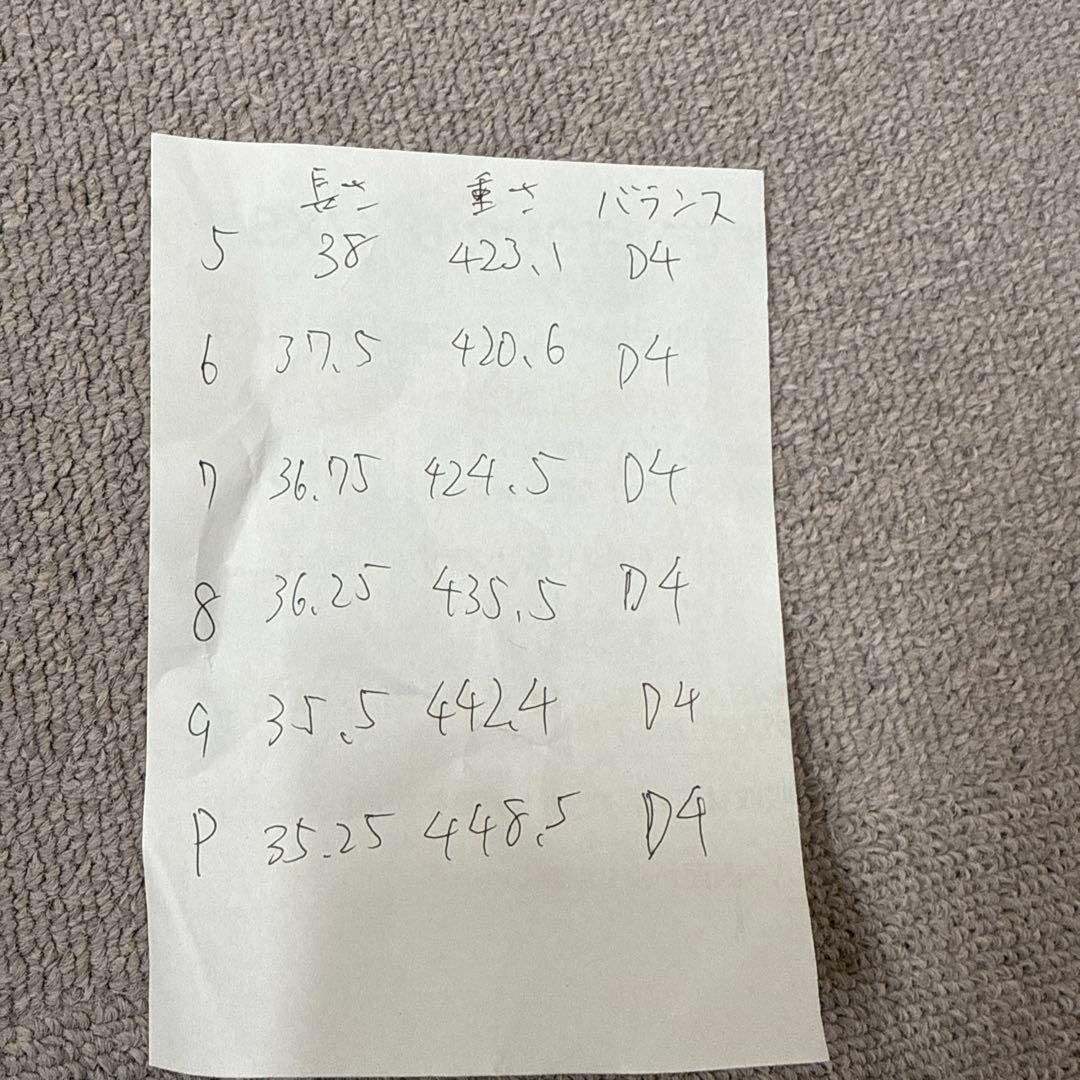 長さ 重さ バランス
5 38 423.1 D4
6 37.5 420.6 D4
7 36.75 424.5 D4
8 36.25 435.5 D4
9 35.5 442.4 D4
P 35.25 448.5 D4